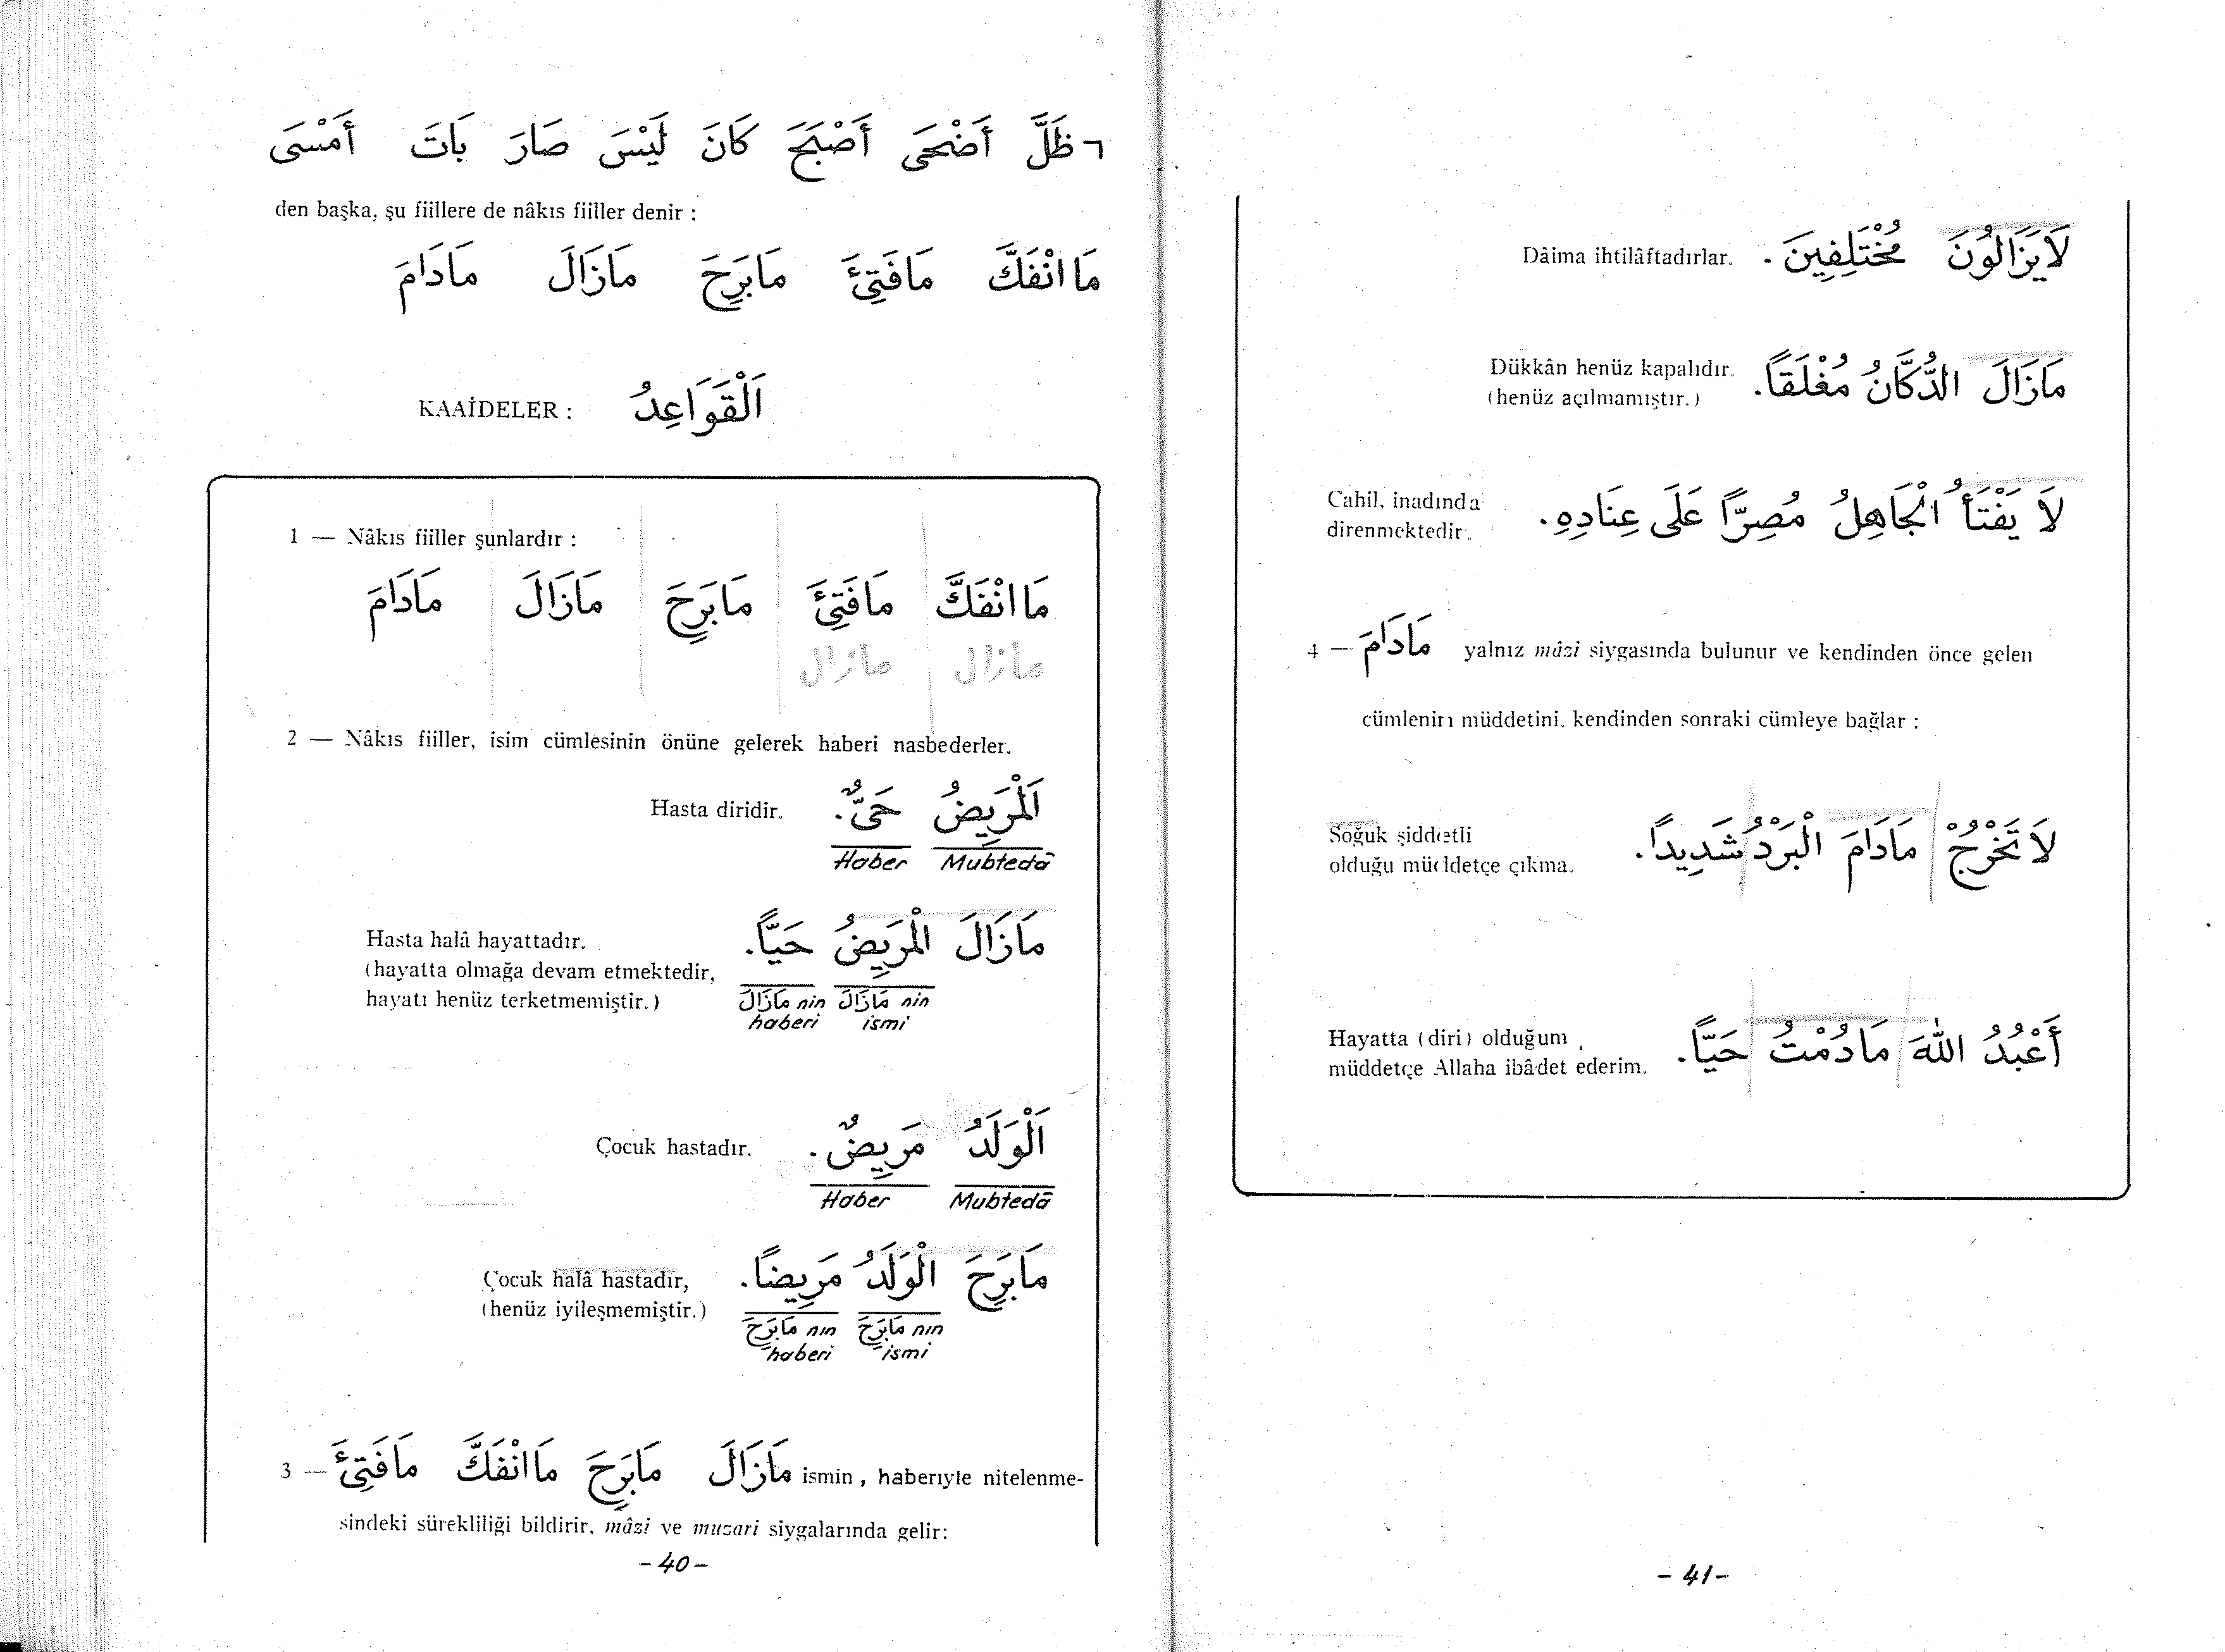 ٦ ظَلَّ أَضْحَى أَصْبَحَ كَانَ لَيْسَ صَارَ بَاتَ أَمْسَى
den başka, şu fiillere de nâkıs fiiller denir :
مَا انْفَكَّ مَافَتِئَ مَابَرِحَ مَازَالَ مَادَامَ
KAAİDELER : اَلْقَوَاعِدُ
1 — Nâkıs fiiller şunlardır :
مَا انْفَكَّ مَافَتِئَ مَابَرِحَ مَازَالَ مَادَامَ
مازال مازال
2 — Nâkıs fiiller, isim cümlesinin önüne gelerek haberi nasbederler.
Hasta diridir. اَلْمَرِيضُ حَىٌّ.
Haber Mubtedâ
Hasta halâ hayattadır. مَازَالَ الْمَرِيضُ حَيًّا.
(hayatta olmağa devam etmektedir,
hayatı henüz terketmemiştir.) مَازَالَ nin مَازَالَ nin
haberi ismi
Çocuk hastadır. اَلْوَلَدُ مَرِيضٌ.
Haber Mubtedâ
Çocuk halâ hastadır, مَابَرِحَ الْوَلَدُ مَرِيضًا.
(henüz iyileşmemiştir.)
مَابَرِحَ nın مَابَرِحَ nın
haberi ismi
3 — مَافَتِئَ مَا انْفَكَّ مَابَرِحَ مَازَالَ ismin, haberiyle nitelenme-
sindeki sürekliliği bildirir, mâzi ve muzari siygalarında gelir:
- 40 -
Dâima ihtilâftadırlar. لَايَزَالُونَ مُخْتَلِفِينَ.
Dükkân henüz kapalıdır. مَازَالَ الدُّكَّانُ مُغْلَقاً.
(henüz açılmamıştır.)
Cahil, inadında لَا يَفْتَأُ الْجَاهِلُ مُصِرًّا عَلَى عِنَادِهِ.
direnmektedir.
4 — مَادَامَ yalnız mâzi siygasında bulunur ve kendinden önce gelen
cümlenin müddetini, kendinden sonraki cümleye bağlar :
Soğuk şiddetli لَا تَخْرُجْ مَادَامَ الْبَرْدُ شَدِيداً.
olduğu müddetçe çıkma.
Hayatta (diri) olduğum أَعْبُدُ اللهَ مَادُمْتُ حَيًّا.
müddetçe Allaha ibâdet ederim.
- 41 -